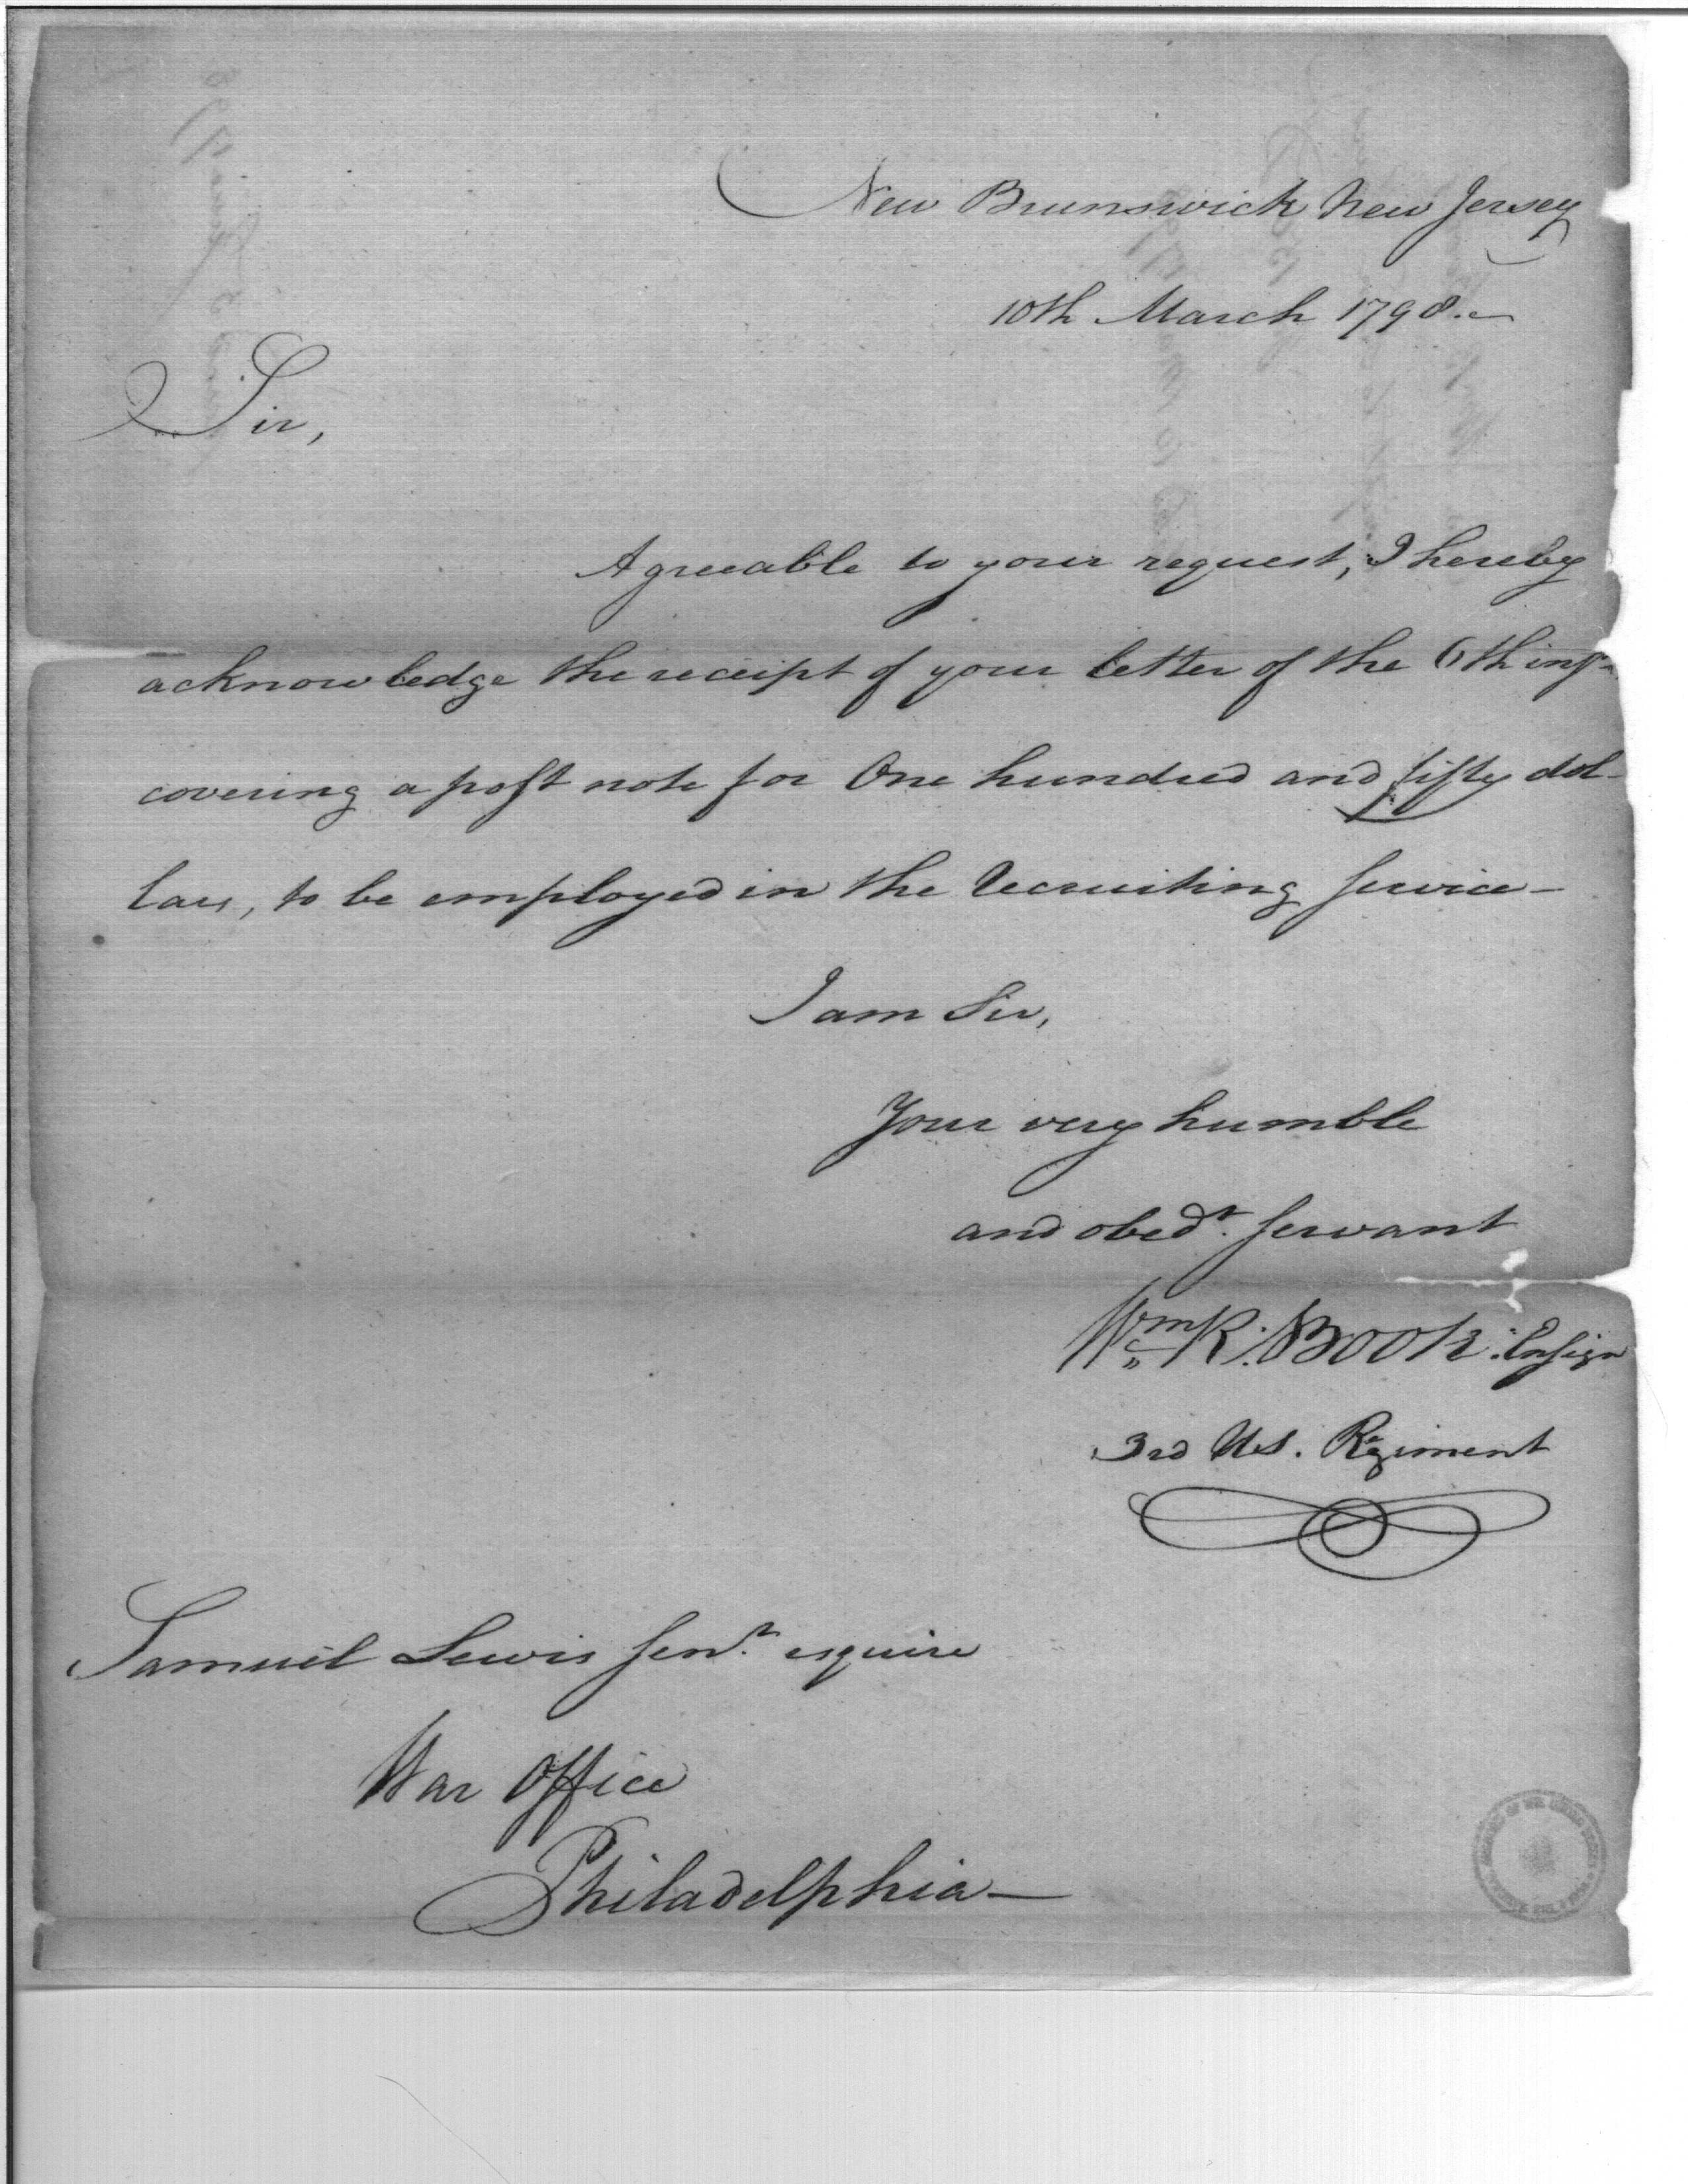 New Brunswick New Jersey
10th March 1798.
Sir,
Agreeable to your request, I hereby
acknowledge the receipt of your letter of the 6th inst
covering a post note for One hundred and fifty dol-
lars, to be employed in the recruiting service-
I am Sir,
Your very humble
and obedt. servant
Wm K. Book. Ensign
3rd US. Regiment
Samuel Lewis Senr. esquire
War Office
Philadelphia-